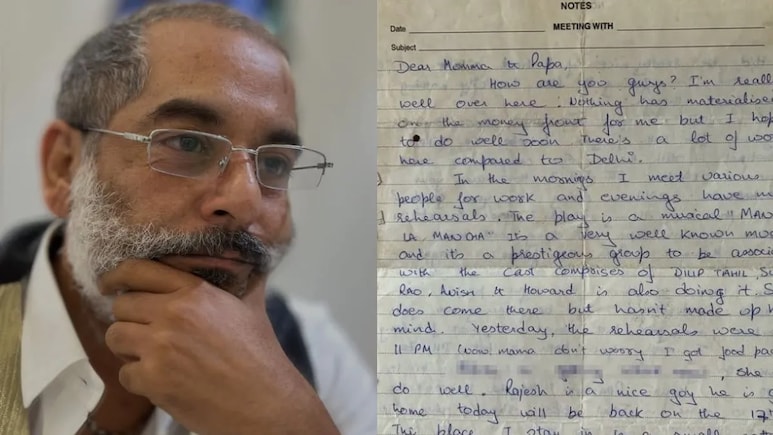 NOTES
Date MEETING WITH
Subject
Dear Momma & Papa,
How are you guys? I'm reall
well over here. Nothing has materialise
on the money front for me but I hop
to do well soon There's a lot of wor
here compared to Delhi.
In the mornings I meet various
people for work and evenings have mu
rehearsals. The play is a musical "MAN
LA MANCHA" It's a very well known mus
and it's a prestigeous group to be associ
with the cast comprises of DILIP TAHIL, S
RAO, & Howard is also doing it. S
does come there but hasn't made up h
mind. Yesterday, the rehearsals were
11 PM (wow mama don't worry I got good pa
, she
do well. Rajesh is a nice guy he is g
home today will be back on the 17
The place I stay in is a small